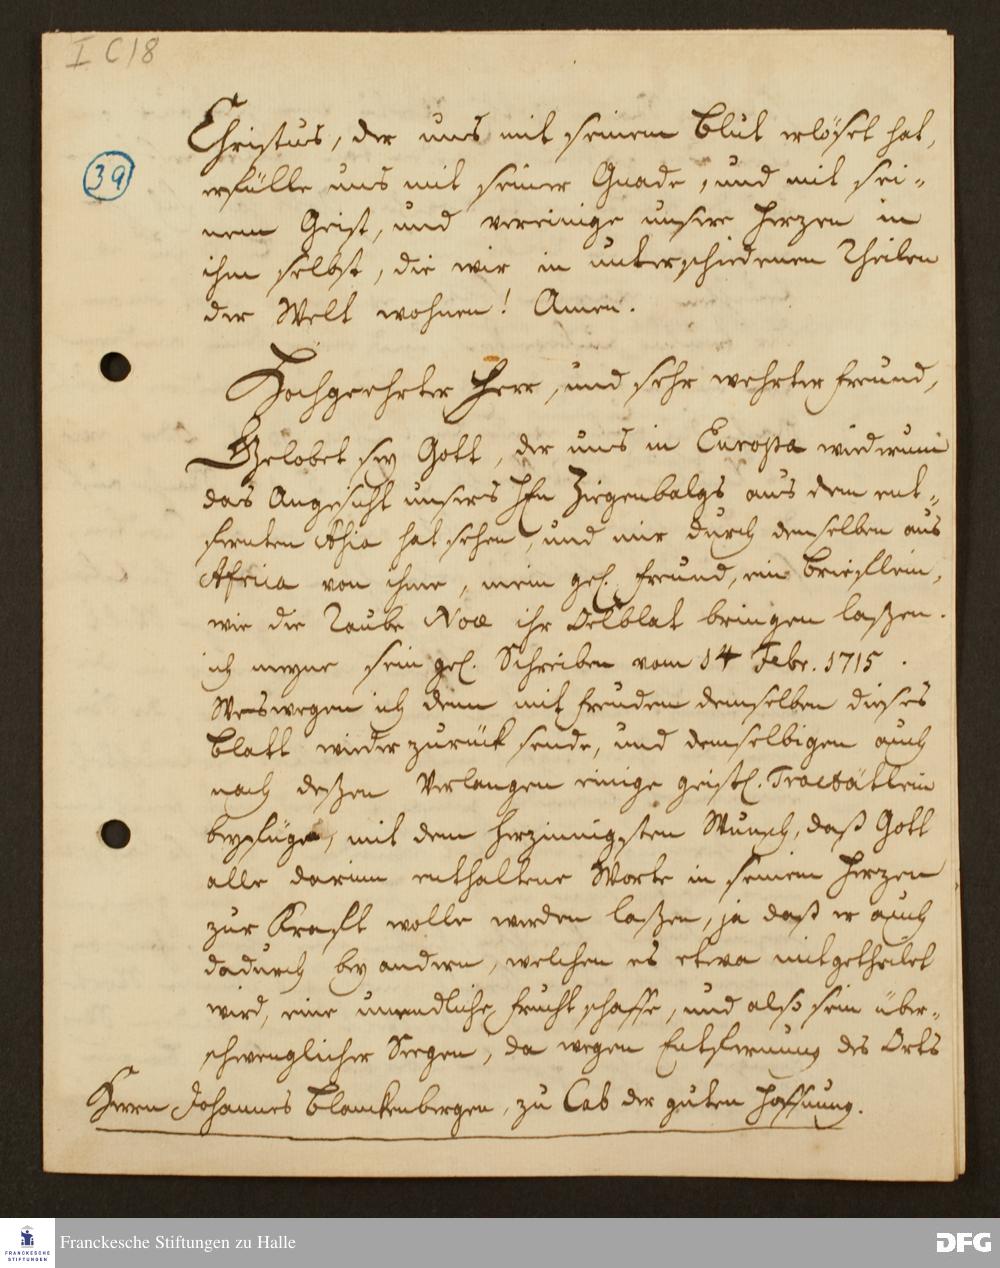 I C 18
39
Christus, der uns mit seinem Blut erlöset hat,
erfülle uns mit seiner Gnade, und mit sei-
nem Geist, und vereinige unsere Herzen in
ihm selbst, die wir in unterschiedenen Theilen
der Welt wohnen! Amen.
Hochgeehrter Herr, und sehr wehrter Freund,
Gelobet sey Gott, der uns in Europa wiederum
das Angesicht unsers Hrn Ziegenbalgs aus dem ent-
fernten Asia hat sehen, und mir durch denselben aus
Africa von ihme, mein gel. Freund, ein Brieflein,
wie die Taube Noæ ihr Oelblat bringen laßen.
ich meyne sein gel. Schreiben vom 14 Febr. 1715.
Weswegen ich denn mit Freuden demselben dieses
Blatt wieder zurück sende, und demselbigen auch
nach deßen Verlangen einige geistl. Tractätlein
beyfüge, mit dem herzinnigsten Wunsch, daß Gott
alle darinn enthaltene Worte in seinem Herzen
zur Krafft wolle werden laßen, ja daß er auch
dadurch bey andern, welchen es etwa mitgetheilet
wird, eine unendliche Frucht schaffe, und also sein über-
schwenglicher Seegen, da wegen Entfernung des Orts
Herrn Johannes Blanckenbergen, zu Cab der guten Hoffnung.
FRANCKESCHE
STIFTUNGEN
Franckesche Stiftungen zu Halle
DFG